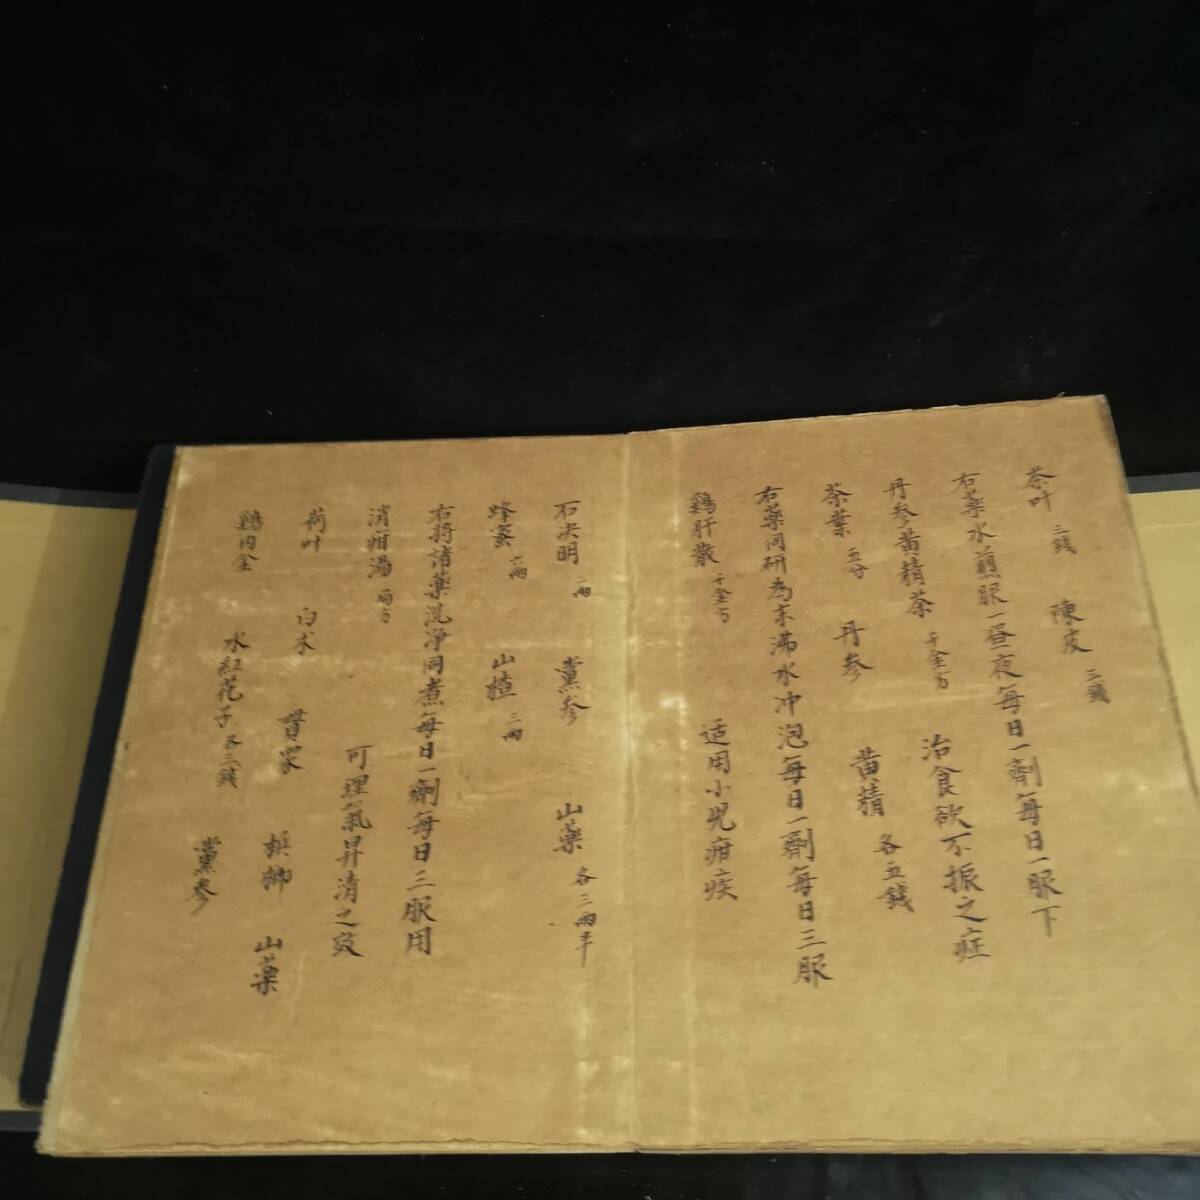 茶叶 三錢 陳皮 三錢
右藥水煎服一昼夜每日一劑每日一服下
丹参黄精茶 千金方 治食欲不振之症
茶葉 五分 丹参 黄精 各五錢
右藥同研為末沸水冲泡每日一劑每日三服
鷄肝散 千金方 适用小児疳疾
石决明 二兩 黨参 山藥 各三兩半
蜂蜜 一兩 山楂 三兩
右將諸藥洗净同煮每日一劑每日三服用
消疳湯 局方 可理氣昇清之效
荷叶 白术 貫眾 槟榔 山藥
鷄内金 水紅花子 各三錢 黨参